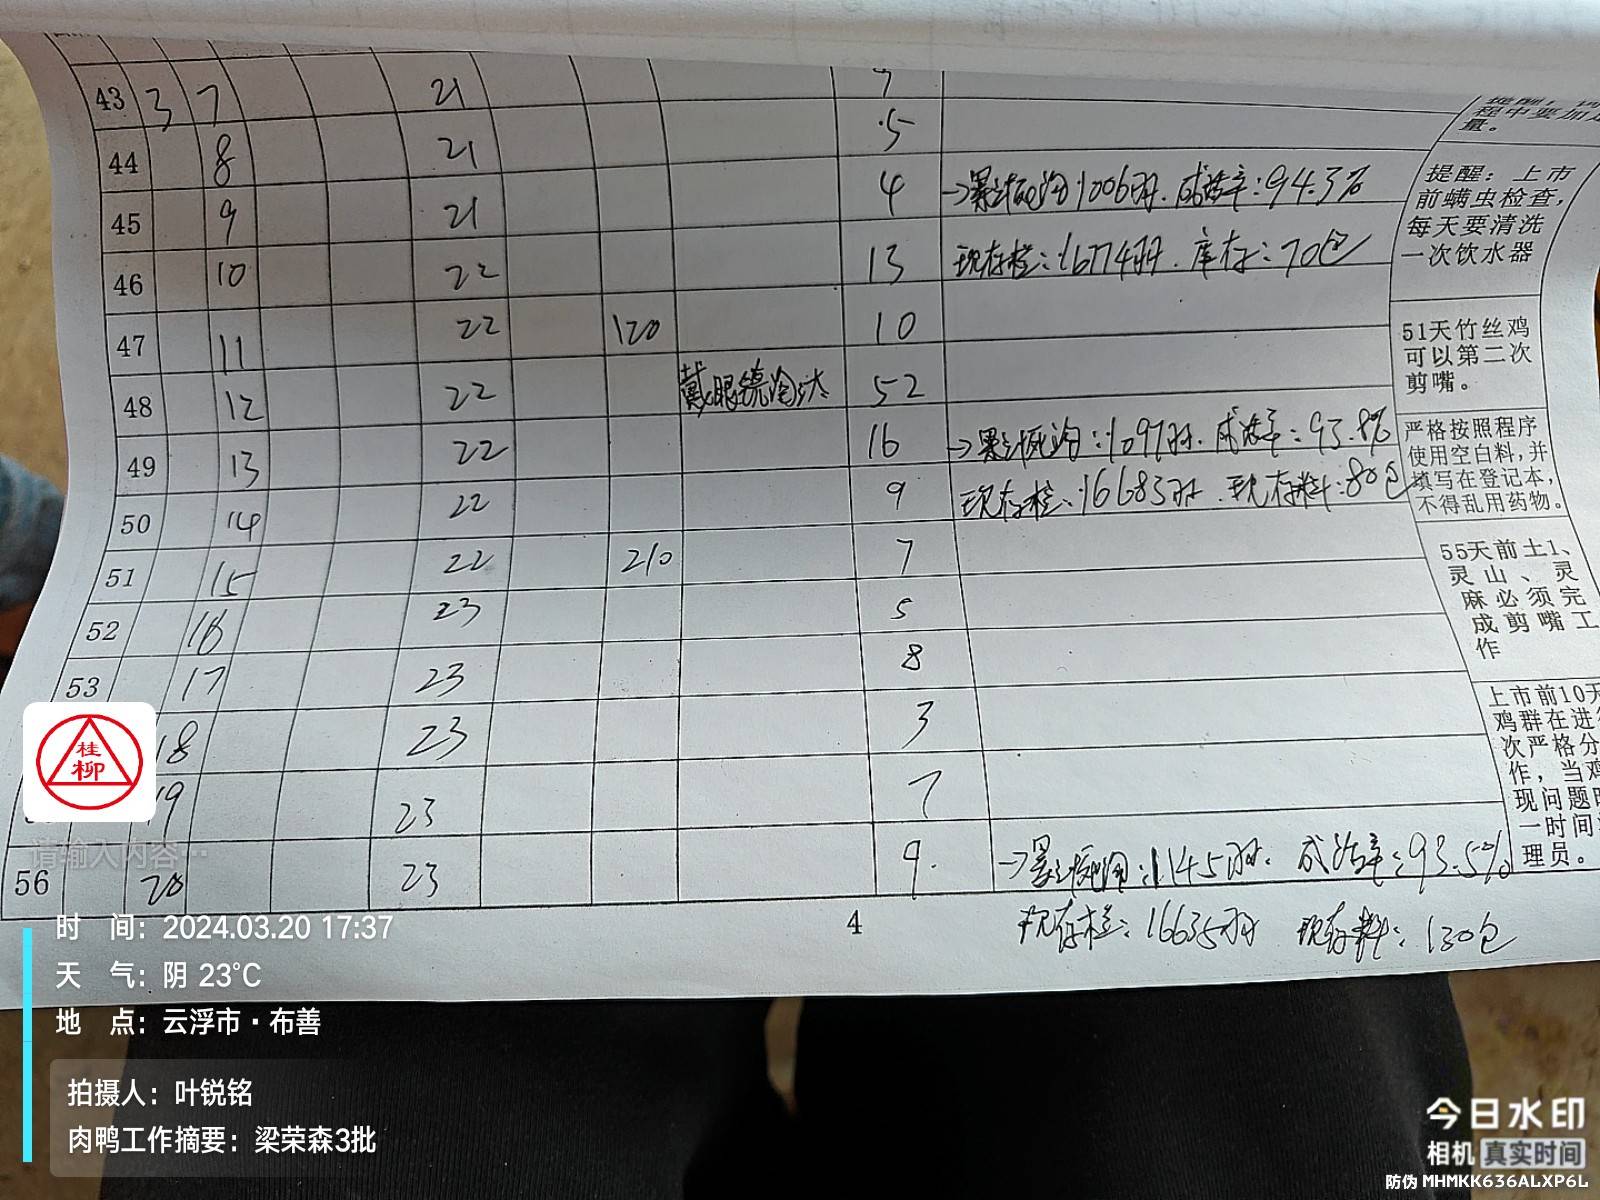 43 3 7 21 7
44 8 21 5
45 9 21 4 →累计死淘1006羽.成活率:94.3%
46 10 22 13 现存栏:16774羽.库存:70包
47 11 22 120 10
48 12 22 戴眼镜淘汰 52
49 13 22 16 →累计死淘:1097羽.成活率:93.8%
50 14 22 9 现存栏:16683羽.现存料:80包
51 15 22 210 7
52 16 23 5
53 17 23 8
18 23 3
19 23 7
56 20 23 9. →累计死淘:1145羽.成活率:93.5%
现存栏:16635羽 现存料:130包
4
程中要加
量。
提醒:上市
前螨虫检查,
每天要清洗
一次饮水器
51天竹丝鸡
可以第二次
剪嘴。
严格按照程序
使用空白料,并
填写在登记本,
不得乱用药物。
55天前土1、
灵山、灵
麻必须完
成剪嘴工
作
上市前10天
鸡群在进行
次严格分
作,当鸡
现问题时
一时间
理员。
桂
柳
请输入内容…
时 间:2024.03.20 17:37
天 气:阴 23°C
地 点:云浮市·布善
拍摄人:叶锐铭
肉鸭工作摘要:梁荣森3批
今日水印
相机 真实时间
防伪 MHMKK636ALXP6L